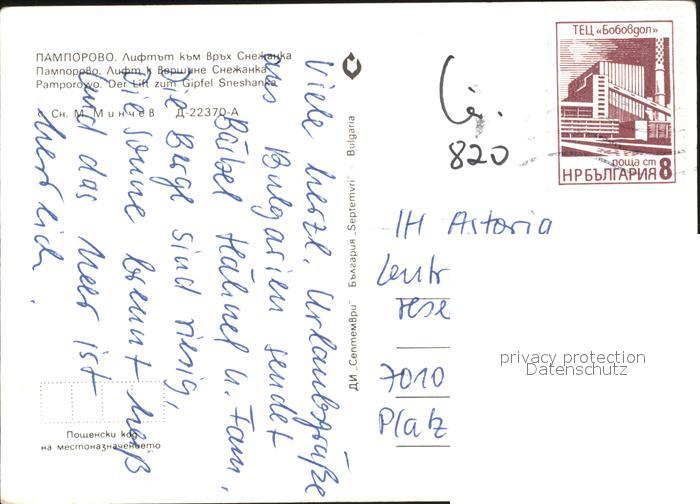 ПАМПОРОВО. Лифтът към връх Снежанка
Пампорово. Лифт к вершине Снежанка
Pamporowo. Der Lift zum Gipfel Sneshanka
Сн. М. Минчев Д-22370-А
Viele herzl. Urlaubsgrüße
aus Bulgarien sendet
Bärbel Hähnel u. Fam.
Die Berge sind riesig,
die Sonne brennt heiß
und das Meer ist
herrlich.
Пощенски код
на местоназначението
ДИ „Септември“ България „Septemvri“ Bulgaria
820
ТЕЦ «Бобовдол»
поща ст
НРБЪЛГАРИЯ 8
IH Astoria
Zentr
rese
7010
Platz
privacy protection
Datenschutz